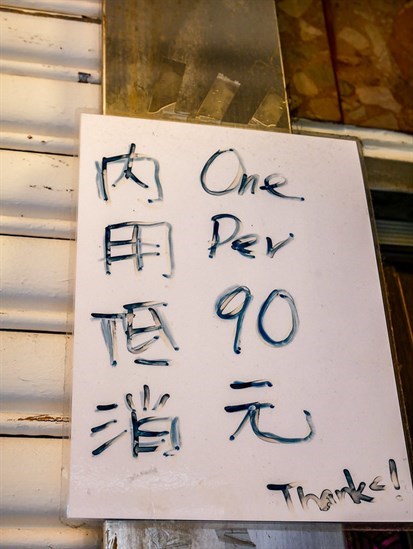 內用低消
One
Per
90
元
Thanks!